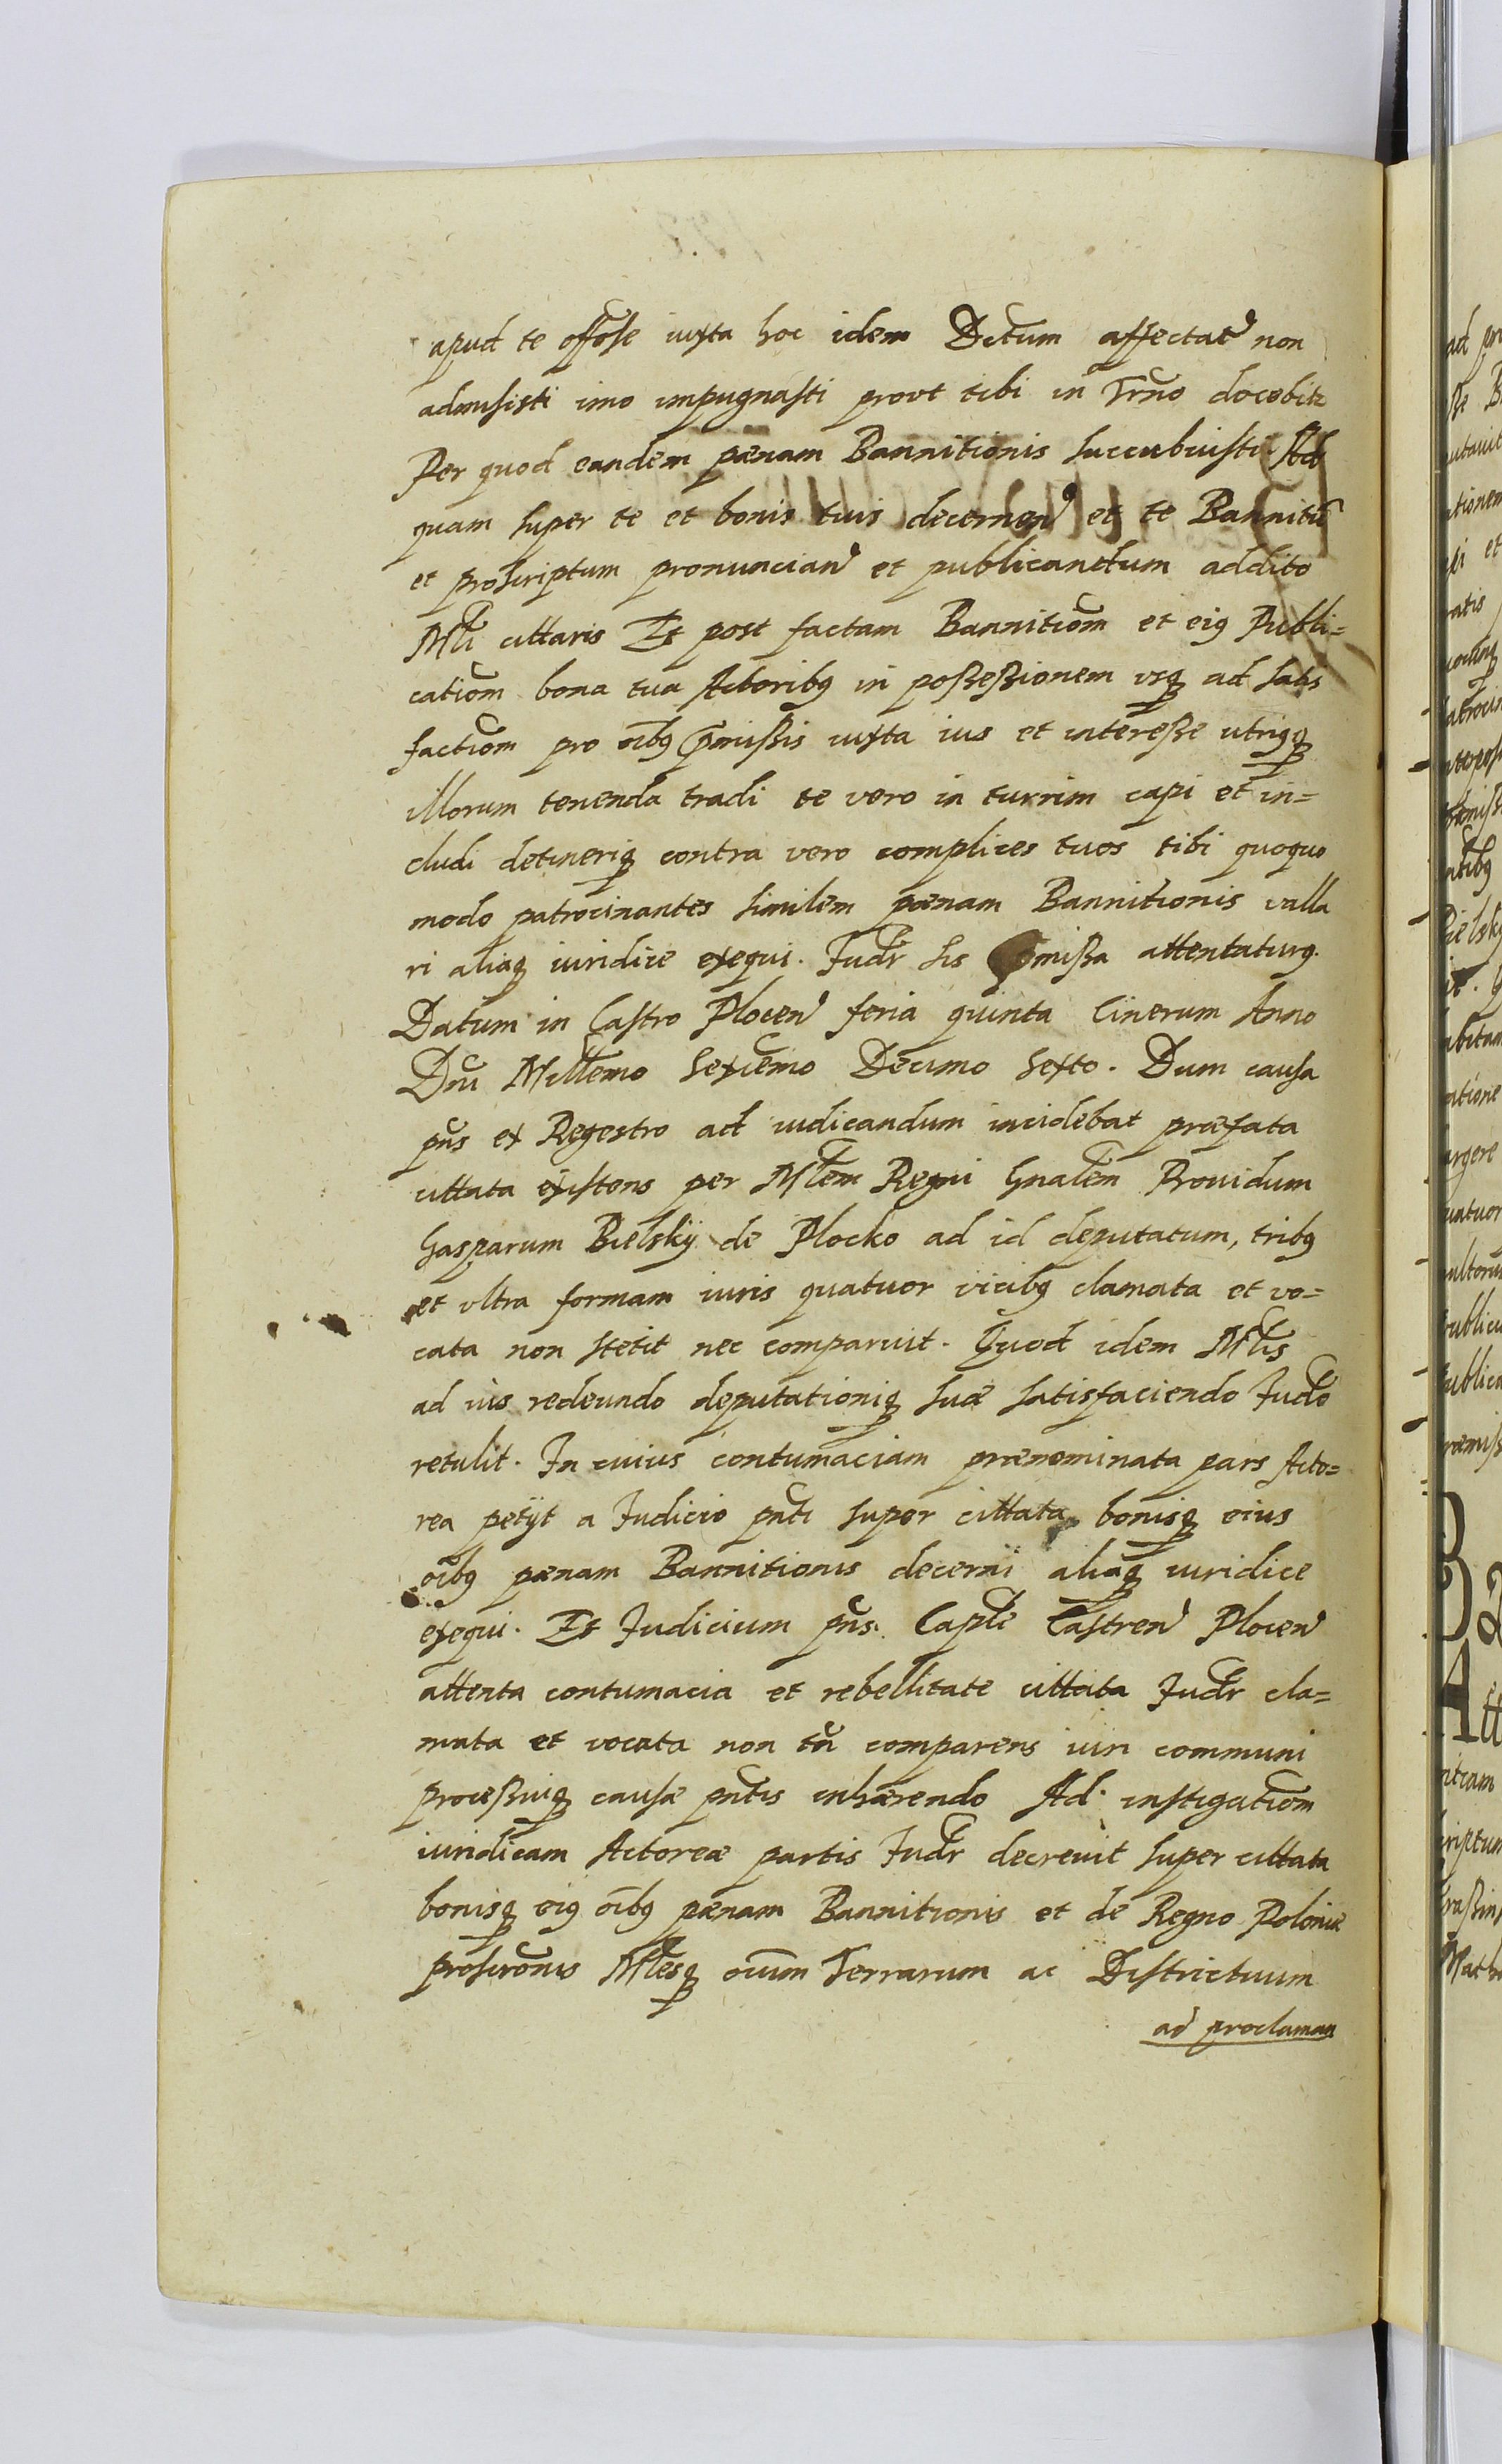 apud te offose iuxta hoc idem Dctum affectat non
admisisti imo impugnasti prout tibi in Trno docebit
Per quod eandem pænam Bannitionis succubuisti Ad
quam super te et bonis tuis decernen et te Bannitu
et proscriptum pronuncian et publicandum addito
Mli cittaris Et post factam Bannitiom et eiq Publi=
catiom bona tua Actoribq in possessionem usq ad satis
factiom pro oibq pmissis iuxta ius et interesse utriqq
illorum tenenda tradi te vero in turrim capi et in=
cludi detineriq contra vero complices tuos tibi quoquo
modo patrocinantes similem pænam Bannitionis valla
ri aliaq iuridice exequi. Judr sis pmissa attentaturq.
Datum in Castro Plocen feria quinta Cinerum Anno
Dni Millemo Sexcemo Decimo Sexto. Dum causa
pns ex Regestro ad iudicandum incidebat præfata
cittata existens per Mlem Regni Gnalem Prouidum
Gasparum Bielskÿ de Plocko ad id deputatum, tribq
et ultra formam iuris quatuor vicibq clamata et vo=
cata non stetit nec comparuit. Quod idem Mlis
ad ius redeundo deputationiq suæ satisfaciendo Judo
retulit. In cuius contumaciam prænominata pars Acto=
rea petÿt a Judicio pnti super cittata bonisq eius
oibq pænam Bannitionis decerni aliaq iuridice
exequi. Et Judicium pns. Caple Castren Plocen
attenta contumacia et rebellitate cittata Judr cla=
mata et vocata non tn comparens iuri communi
processuiq causæ pntis inhærendo Ad instigatiom
iuridicam Actoreæ partis Judr decreuit super cittata
bonisq eiq oibq pænam Bannitionis et de Regno Poloniæ
proscronis Mlesq oium Terrarum ac Districtuum
ad proclaman